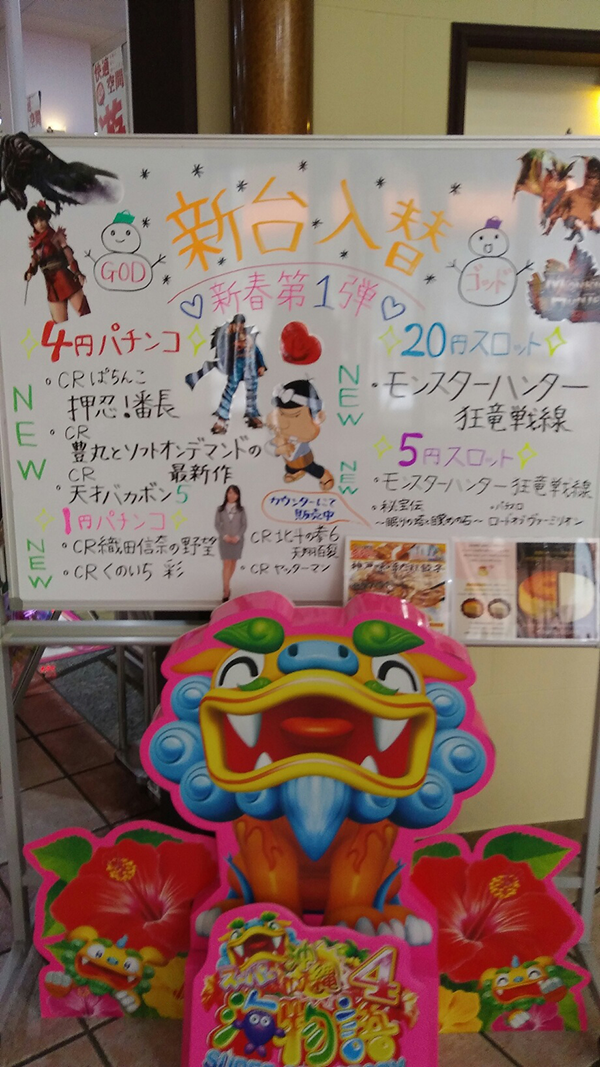 快適
空間
新台入替
GOD
ゴッド
新春第1弾
4円パチンコ
NEW
・CRぱちんこ
押忍!番長
・CR
豊丸とソフトオンデマンドの
最新作
CR
・天才バカボン5
1円パチンコ
NEW
・CR織田信奈の野望
・CRくのいち 彩
・CR北斗の拳6
・CRヤッターマン
20円スロット
NEW
・モンスターハンター
狂竜戦線
5円スロット
NEW
・モンスターハンター狂竜戦線
・秘宝伝
・パチスロ
ロードオブヴァーミリオン
カウンターにて
販売中
物語
4
SUPER